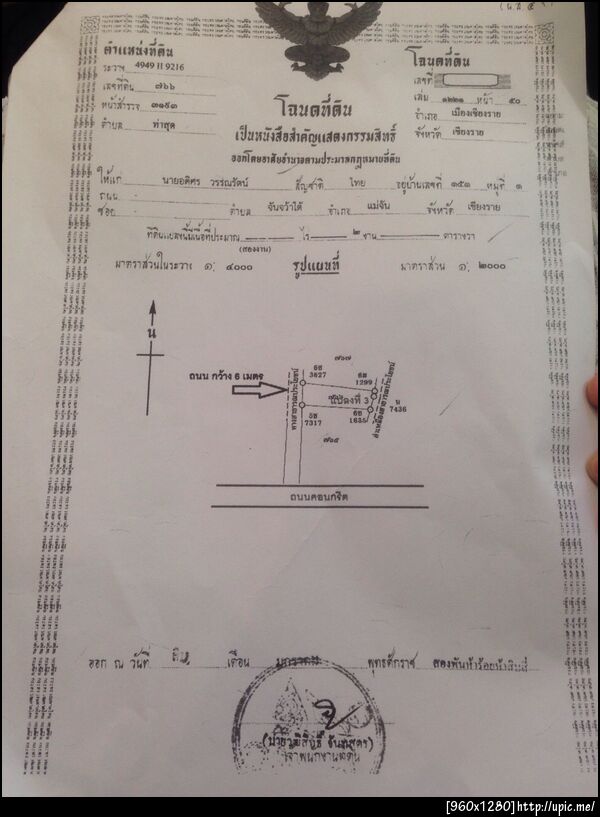 (น.ส. ๔
ตำแหน่งที่ดิน
ระวาง 4949 II 9216
เลขที่ดิน ๗๖๖
หน้าสำรวจ ๓๑๙๓
ตำบล ท่าสุด
โฉนดที่ดิน
เลขที่
เล่ม ๑๒๒๑ หน้า ๕๐
อำเภอ เมืองเชียงราย
จังหวัด เชียงราย
โฉนดที่ดิน
เป็นหนังสือสำคัญแสดงกรรมสิทธิ์
ออกโดยอาศัยอำนาจตามประมวลกฎหมายที่ดิน
ให้แก่ นายอดิศร วรรณรัตน์ สัญชาติ ไทย อยู่บ้านเลขที่ ๑๕๑ หมู่ที่ ๑
ถนน
ซอย ตำบล จันจว้าใต้ อำเภอ แม่จัน จังหวัด เชียงราย
ที่ดินแปลงนี้มีเนื้อที่ประมาณ ไร่ ๒ งาน ตารางวา
(สองงาน)
มาตราส่วนในระวาง ๑: ๔๐๐๐ รูปแผนที่ มาตราส่วน ๑: ๒๐๐๐
น
๗๖๗
ถนน กว้าง 6 เมตร
ทางสาธารณประโยชน์
6ช 3627
6ช 1299
ที่ 3
น 7436
5ช 7317
6ช 1635
๗๖๕
ถนนคอนกรีต
ออก ณ วันที่ สิบ เดือน มกราคม พุทธศักราช สองพันห้าร้อยห้าสิบสี่
เจ้าพนักงานที่ดิน
[960x1280]http://upic.me/